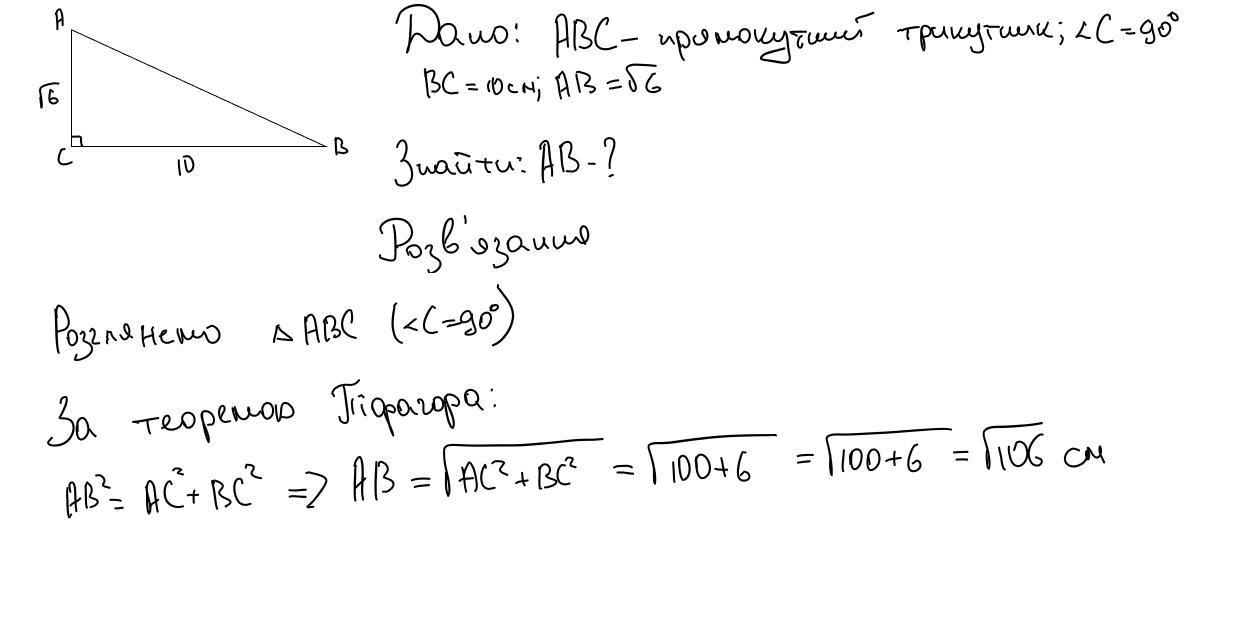 A
Дано: ABC – прямокутний трикутник; <C = 90°
√6
BC = 10 см; AB = √6
C
10
B
Знайти: AB - ?
Розв'язання
Розглянемо △ABC (<C=90°)
За теоремою Піфагора:
AB² = AC² + BC² => AB = √(AC² + BC²) = √(100+6) = √(100+6) = √106 см